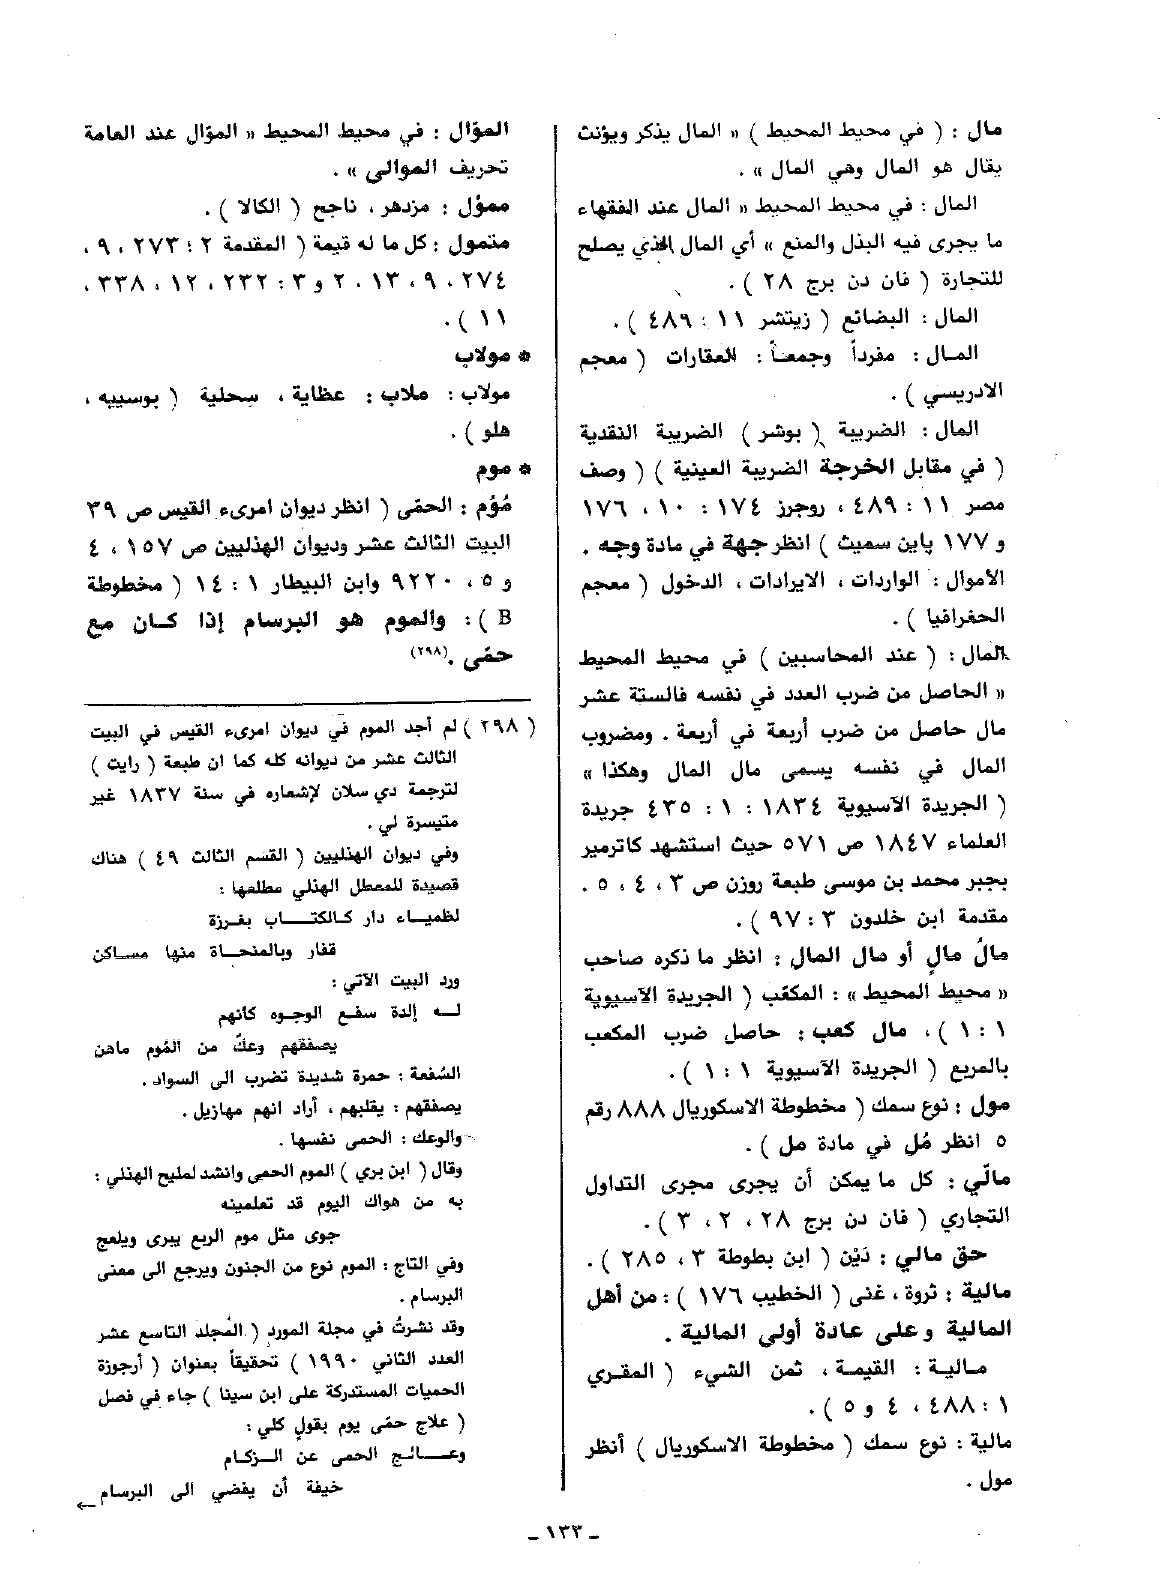 مال : ( في محيط المحيط ) « المال يذكر ويؤنث
يقال هو المال وهي المال » .
المال : في محيط المحيط « المال عند الفقهاء
ما يجرى فيه البذل والمنع » أي المال الذي يصلح
للتجارة ( فان دن برج ٢٨ ) .
المال : البضائع ( زيتشر ١١ : ٤٨٩ ) .
المال : مفرداً وجمعاً : العقارات ( معجم
الادريسي ) .
المال : الضريبة ( بوشر ) الضريبة النقدية
( في مقابل الخرجة الضريبة العينية ) ( وصف
مصر ١١ : ٤٨٩ ، روجرز ١٧٤ : ١٠ ، ١٧٦
و ١٧٧ پاين سميث ) انظر جهة في مادة وجه .
الأموال : الواردات ، الايرادات ، الدخول ( معجم
الجغرافيا ) .
المال : ( عند المحاسبين ) في محيط المحيط
« الحاصل من ضرب العدد في نفسه فالستة عشر
مال حاصل من ضرب أربعة في أربعة . ومضروب
المال في نفسه يسمى مال المال وهكذا »
( الجريدة الآسيوية ١٨٣٤ : ١ : ٤٣٥ جريدة
العلماء ١٨٤٧ ص ٥٧١ حيث استشهد كاترمير
بجبر محمد بن موسى طبعة روزن ص ٣ ، ٤ ، ٥ .
مقدمة ابن خلدون ٣ : ٩٧ ) .
مالُ مالٍ أو مال المال : انظر ما ذكره صاحب
« محيط المحيط » : المكعّب ( الجريدة الآسيوية
١ : ١ ) ، مال كعب : حاصل ضرب المكعب
بالمربع ( الجريدة الآسيوية ١ : ١ ) .
مول : نوع سمك ( مخطوطة الاسكوريال ٨٨٨ رقم
٥ انظر مُل في مادة مل ) .
ماليّ : كل ما يمكن أن يجرى مجرى التداول
التجاري ( فان دن برج ٢٨ ، ٢ ، ٣ ) .
حق مالي : دَيْن ( ابن بطوطة ٣ ، ٢٨٥ ) .
مالية : ثروة ، غنى ( الخطيب ١٧٦ ) : من أهل
المالية وعلى عادة أولي المالية .
مالية : القيمة ، ثمن الشيء ( المقري
١ : ٤٨٨ ، ٤ و ٥ ) .
مالية : نوع سمك ( مخطوطة الاسكوريال ) أنظر
مول .
الموَّال : في محيط المحيط « المؤال عند العامة
تحريف الموالي » .
مموَّل : مزدهر ، ناجح ( الكالا ) .
متمول : كل ما له قيمة ( المقدمة ٢ : ٢٧٣ ، ٩ ،
٢٧٤ ، ٩ ، ١٣ ، ٢ و ٣ : ٢٣٢ ، ١٢ ، ٣٣٨ ،
١١ ) .
* مولاب
مولاب : ملاب : عظاية ، سحلية ( بوسييه ،
هلو ) .
* موم
مُوْم : الحمّى ( انظر ديوان امرىء القيس ص ٣٩
البيت الثالث عشر وديوان الهذليين ص ١٥٧ ، ٤
و ٥ ، ٢٢٠ ٩ وابن البيطار ١ : ١٤ ( مخطوطة
B ) : والموم هو البرسام إذا كان مع
حمّى . (٢٩٨)
( ٢٩٨ ) لم أجد الموم في ديوان امرىء القيس في البيت
الثالث عشر من ديوانه كله كما ان طبعة ( رايت )
لترجمة دي سلان لإشعاره في سنة ١٨٣٧ غير
متيسرة لي .
وفي ديوان الهذليين ( القسم الثالث ٤٩ ) هناك
قصيدة للمعطل الهذلي مطلعها :
لظمياء دار كالكتاب بغرزة
قفار وبالمنحاة منها مساكن
ورد البيت الآتي :
له إلدة سفع الوجوه كأنهم
يصفقهم وعكٌ من المُوم ماهن
السُّفعة : حمرة شديدة تضرب الى السواد .
يصفقهم : يقلبهم ، أراد انهم مهازيل .
والوعك : الحمى نفسها .
وقال ( ابن بري ) الموم الحمى وانشد لمليح الهذلي :
به من هواك اليوم قد تعلمينه
جوى مثل موم الربع يبرى ويلعج
وفي التاج : الموم نوع من الجنون ويرجع الى معنى
البرسام .
وقد نشرتُ في مجلة المورد ( المجلد التاسع عشر
العدد الثاني ١٩٩٠ ) تحقيقاً بعنوان ( أرجوزة
الحميات المستدركة على ابن سينا ) جاء في فصل
( علاج حمّى يوم بقول كلي :
وعالج الحمى عن الزكام
خيفة أن يفضي الى البرسام ←
ـ ١٣٣ ـ